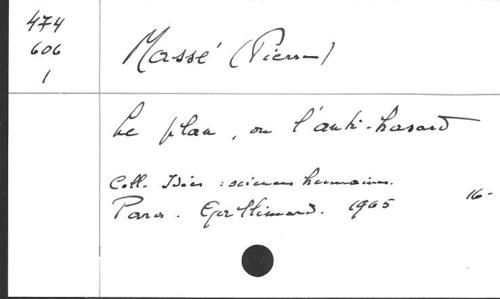 474
606
1
Massé (Pierre)
Le plan, ou l'anti-hasard
Coll. Idées : sciences humaines.
Paris. Gallimard. 1965
16-